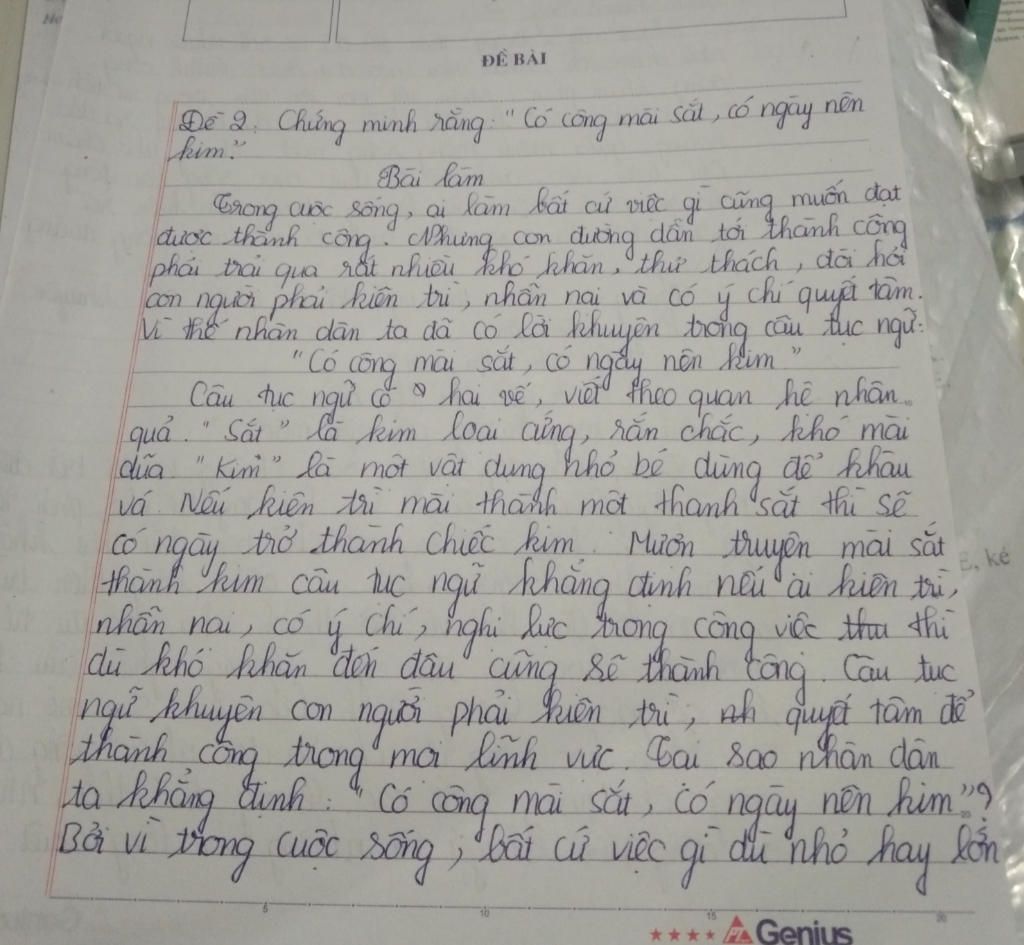 ĐỀ BÀI
Đề 2: Chứng minh rằng: "Có công mài sắt, có ngày nên
kim."
Bài làm
Trong cuộc sống, ai làm bất cứ việc gì cũng muốn đạt
được thành công. Nhưng con đường dẫn tới thành công
phải trải qua rất nhiều khó khăn, thử thách, đòi hỏi
con người phải kiên trì, nhẫn nại và có ý chí quyết tâm.
Vì thế nhân dân ta đã có lời khuyên trong câu tục ngữ:
"Có công mài sắt, có ngày nên kim"
Câu tục ngữ có hai vế, viết theo quan hệ nhân
quả. "Sắt" là kim loại cứng, rắn chắc, khó mài
dũa "Kim" là một vật dụng nhỏ bé dùng để khâu
vá. Nếu kiên trì mài thành một thanh sắt thì sẽ
có ngày trở thành chiếc kim. Mượn truyện mài sắt
thành kim câu tục ngữ khẳng định nếu ai kiên trì,
nhẫn nại, có ý chí, nghị lực trong công việc thu thì
dù khó khăn đến đâu cũng sẽ thành công. Câu tục
ngữ khuyên con người phải kiên trì, nh quyết tâm để
thành công trong mọi lĩnh vực. Tại sao nhân dân
ta khẳng định: "Có công mài sắt, có ngày nên kim"?
Bởi vì trong cuộc sống, bất cứ việc gì dù nhỏ hay lớn
E, kể
5 10 15 20
Genius